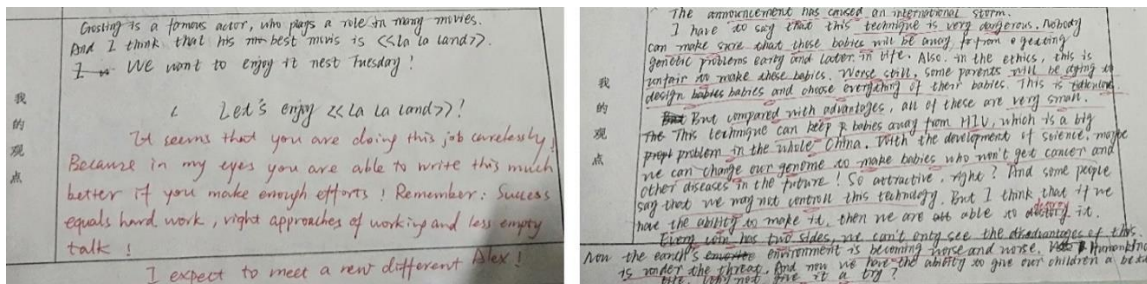 Gosling is a famous actor, who plays a role in many movies.
And I think that his best movis is <<La la land>>.
We want to enjoy it nest Tuesday!
Let's enjoy <<La La Land>>!
我的观点
It seems that you are doing this job carelessly!
Because in my eyes you are able to write this much
better if you make enough efforts! Remember: Success
equals hard work, right approaches of working and less empty
talk!
I expect to meet a new different Alex!
The announcement has caused an international storm.
I have to say that this technique is very dangerous. Nobody
can make sure that those babies will be away from getting
genetic problems early and later in life. Also, in the ethics, this is
unfair to make these babies. Worse still, some parents will be aging to
design babies and choose everything of their babies. This is
But compared with advantages, all of these are very small.
我的观点
This technique can keep babies away from HIV, which is a big
problem in the whole China. With the development of science, maybe
we can change our genome to make babies who won't get cancer and
other diseases in the future! So attractive, right? And some people
say that we may not control this technology. But I think that if we
have the ability to make it, then we are able to destory it.
destroy
Every coin has two sides, we can't only see the disadvantages of this.
Now the earth's environment is becoming worse and worse. Humankind
is under the threat. And now we have the ability to give our children a
life. Why not give it a try?